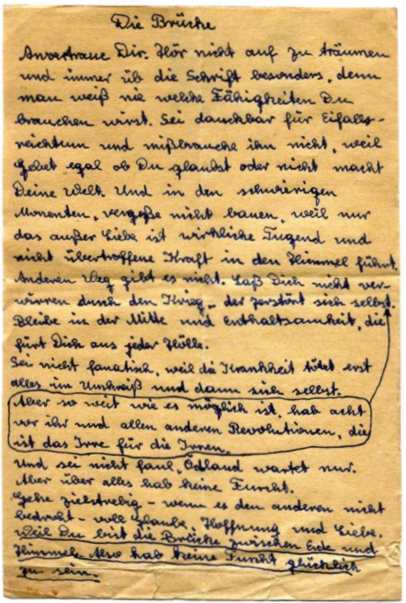 Die Brücke
Anvertraue Dir. Hör nicht auf zu träumen
und immer üb die Schrift besonders, denn
man weiß nie welche Fähigkeiten Du
brauchen wirst. Sei danckbar für Eifalls-
reichtum und mißbrauche ihn nicht, weil
Gebet egal ob Du glaubst oder nicht macht
Deine Welt. Und in den schwierigen
Momenten, vergeße nicht bauen, weil nur
das außer Liebe ist wirkliche Tugend und
nicht übertroffene Kraft in den Himmel führt.
Anderen Weg gibt es nicht. Laß Dich nicht ver-
wirren durch den Krieg, der zerstört sich selbst.
Bleibe in der Mitte und Enthaltsamkeit, die
fürt Dich aus jeder Hölle.
Sei nicht fanatisch, weil die Krankheit tötet erst
alles im Umkreiß und dann sich selbst.
Aber so weit wie es möglich ist, hab acht
vor ihr und allen anderen Revolutionen, die
ist das Irre für die Irren.
Und sei nicht faul, Ödland wartet nur.
Aber über alles hab keine Furcht.
Gehe zielstrebig – wenn es den anderen nicht
bedroht – voll Glaube, Hoffnung und Liebe.
Weil Du bist die Brücke zwischen Erde und
Himmel. Also hab keine Furcht glücklich
zu sein.